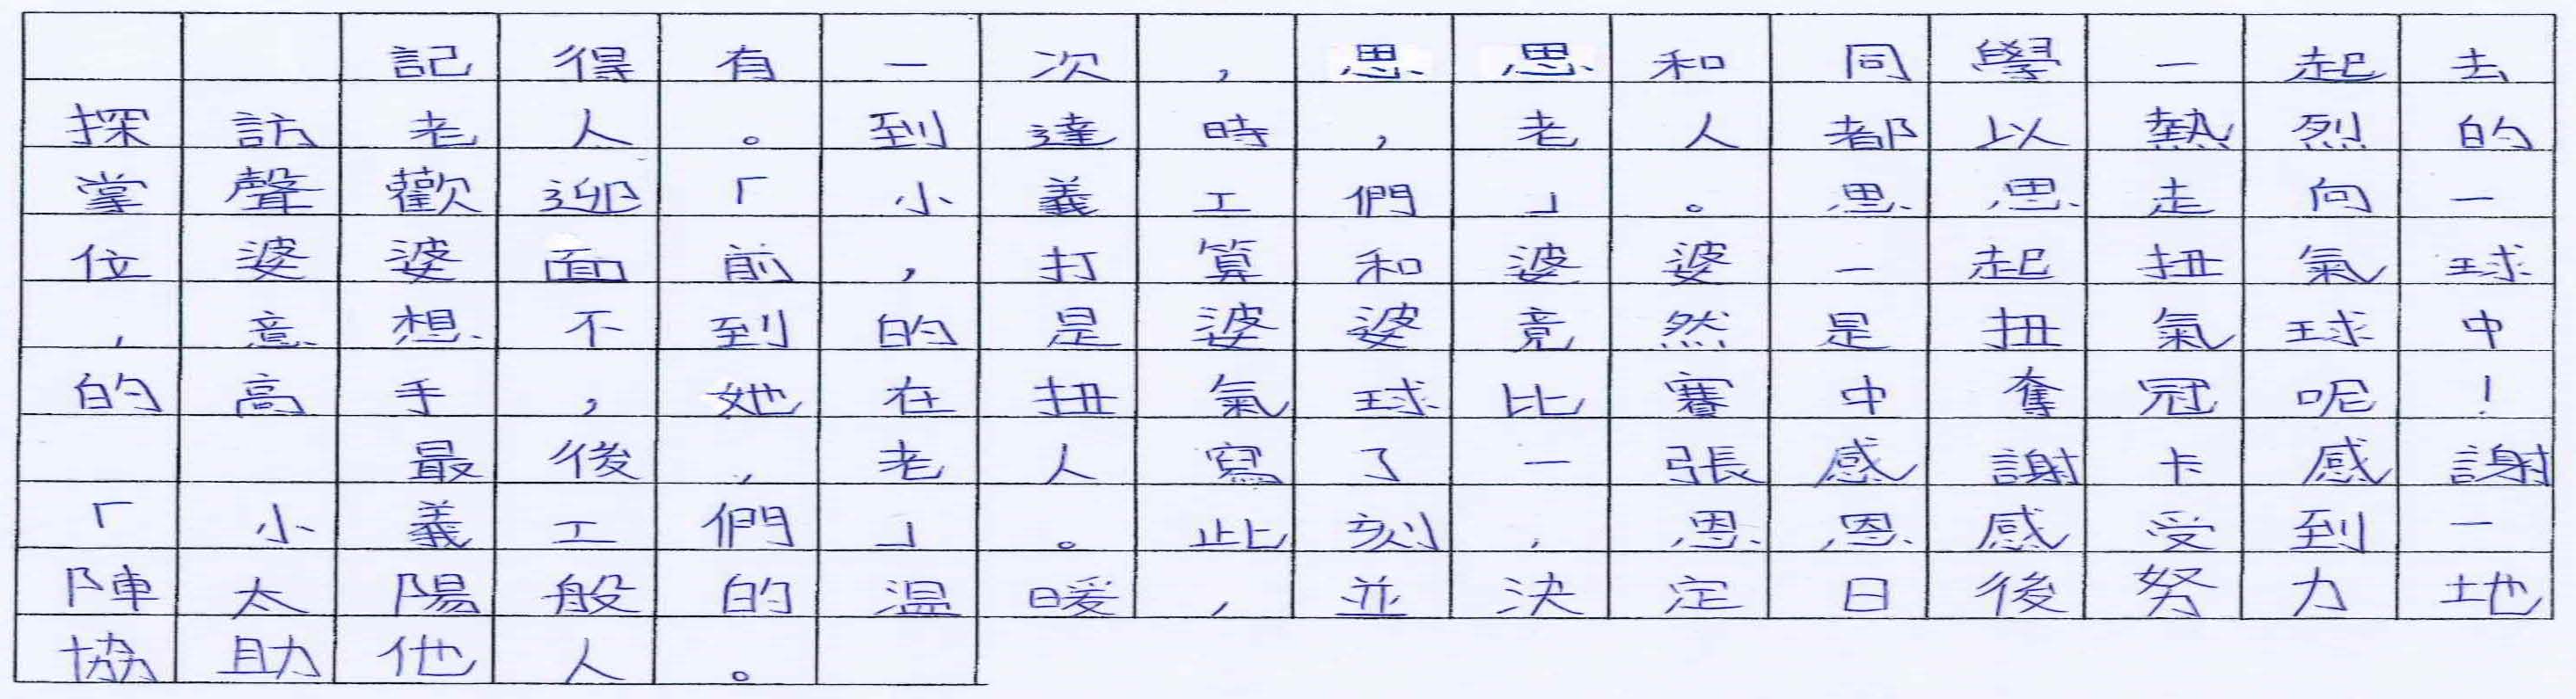 記得有一次，思思和同學一起去
探訪老人。到達時，老人都以熱烈的
掌聲歡迎「小義工們」。思思走向一
位婆婆面前，打算和婆婆一起扭氣球
，意想不到的是婆婆竟然是扭氣球中
的高手，她在扭氣球比賽中奪冠呢！
最後，老人寫了一張感謝卡感謝
「小義工們」。此刻，恩恩感受到一
陣太陽般的溫暖，並決定日後努力地
協助他人。